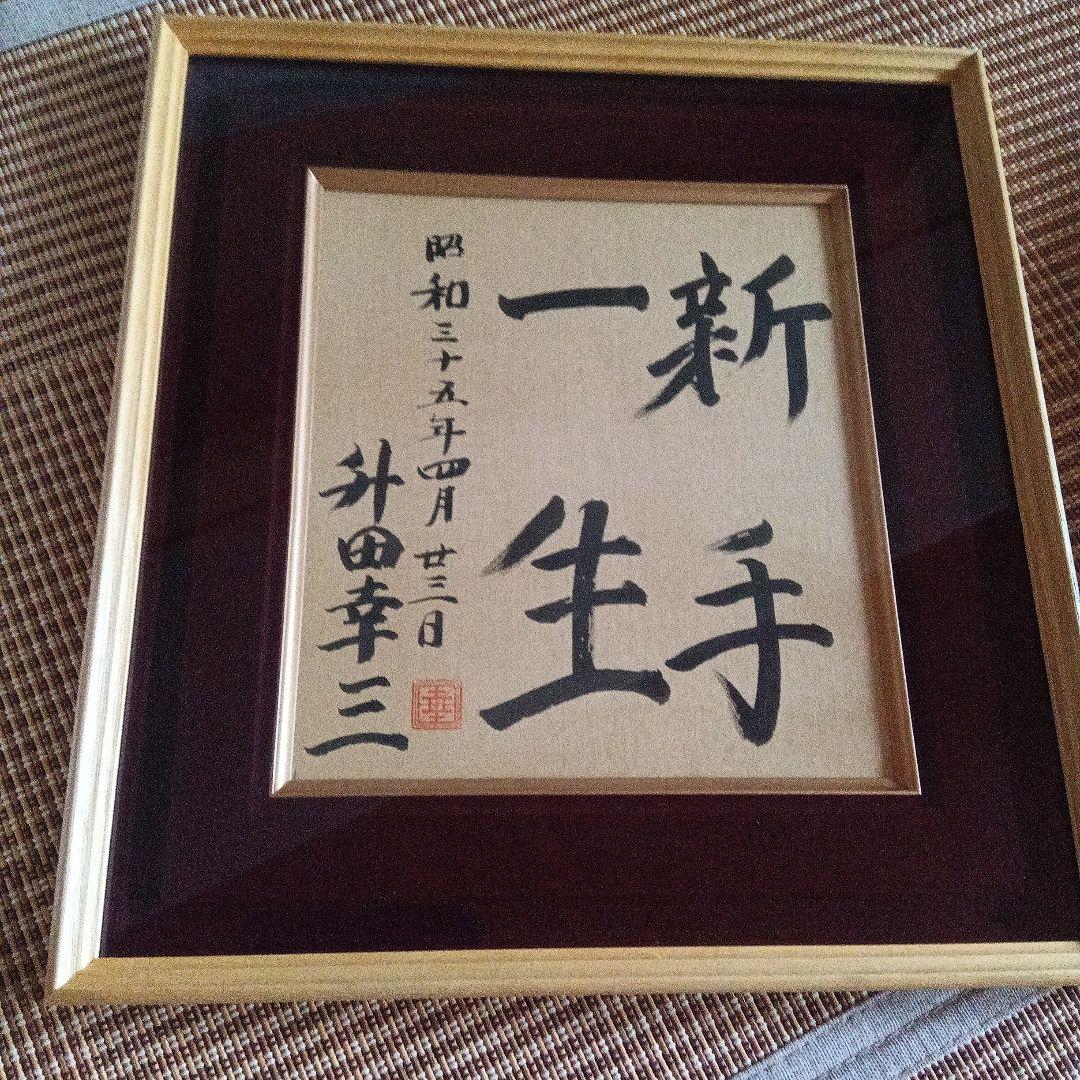 新手
一生
昭和三十五年四月廿三日
升田幸三